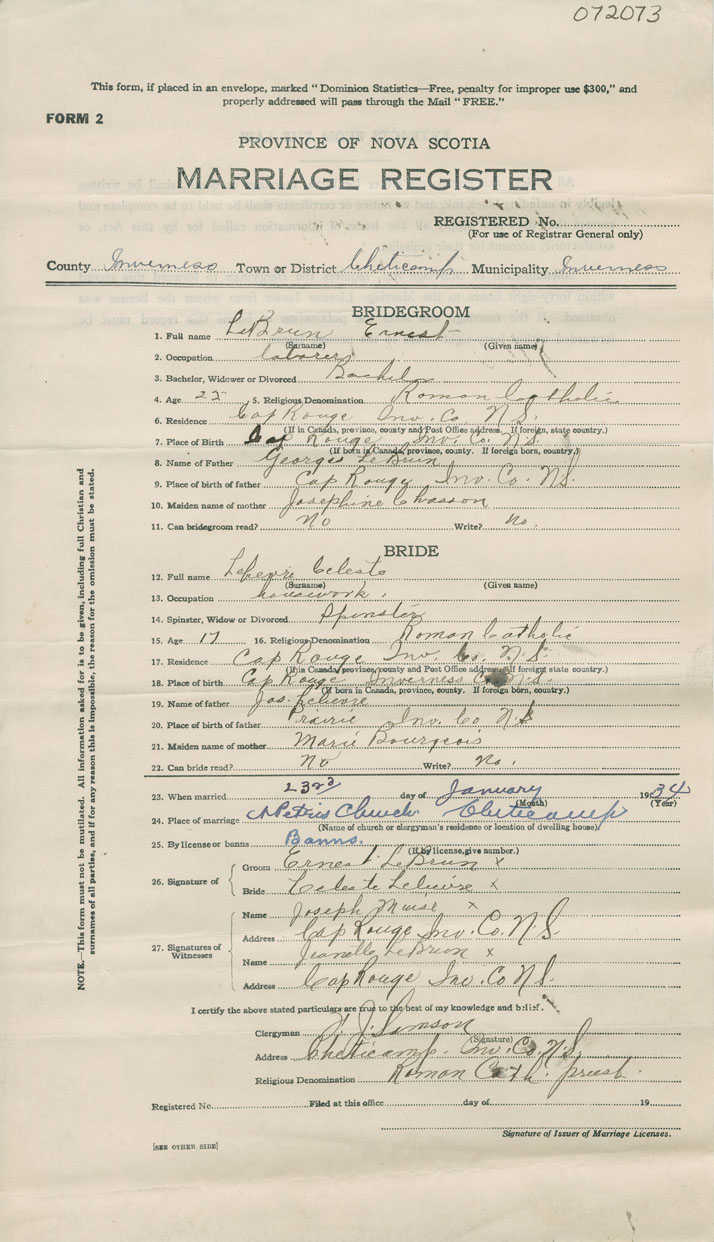 072073
This form, if placed in an envelope, marked "Dominion Statistics—Free, penalty for improper use $300," and
properly addressed will pass through the Mail "FREE."
FORM 2
PROVINCE OF NOVA SCOTIA
MARRIAGE REGISTER
REGISTERED No.
(For use of Registrar General only)
County Inverness Town or District Cheticamp Municipality Inverness
BRIDEGROOM
1. Full name LeBrun Ernest
(Surname) (Given name)
2. Occupation laborer
3. Bachelor, Widower or Divorced Bachelor
4. Age 22 5. Religious Denomination Roman Catholic
6. Residence Cap Rouge Inv. Co. N.S.
(If in Canada, province, county and Post Office address. If foreign, state country.)
7. Place of Birth Cap Rouge Inv. Co. N.S.
(If born in Canada, province, county. If foreign born, country.)
8. Name of Father George LeBrun
9. Place of birth of father Cap Rouge Inv. Co. N.S.
10. Maiden name of mother Josephine Chasson
11. Can bridegroom read? No Write? No.
BRIDE
12. Full name Celeste
(Surname) (Given name)
13. Occupation housework.
14. Spinster, Widow or Divorced Spinster
15. Age 17 16. Religious Denomination Roman Catholic
17. Residence Cap Rouge Inv Co. N.S.
(If in Canada, province, county and Post Office address. If foreign state country.)
18. Place of birth Cap Rouge Inverness Co. N.S.
(If born in Canada, province, county. If foreign born, country.)
19. Name of father Jos. Lelievre
20. Place of birth of father Prairie Inv. Co N.S
21. Maiden name of mother Marie Bourgeois
22. Can bride read? No Write? No.
23. When married 23rd day of January 1934
(Month) (Year)
24. Place of marriage St Peters Church Cheticamp
(Name of church or clergyman's residence or location of dwelling house)
25. By license or banns Banns.
(If by license, give number.)
26. Signature of Groom Ernest LeBrun x
Bride Celeste Lelievre x
27. Signatures of Witnesses
Name Joseph Muise x
Address Cap Rouge Inv. Co. N.S.
Name LeBrun x
Address Cap Rouge Inv. Co N.S.
I certify the above stated particulars are true to the best of my knowledge and belief.
Clergyman Samson
(Signature)
Address Cheticamp. Inv. Co. N.S.
Religious Denomination Roman Cath. priest.
Registered No. Filed at this office day of 19
Signature of Issuer of Marriage Licenses.
[SEE OTHER SIDE]
NOTE.—This form must not be mutilated. All information asked for is to be given, including full Christian and
surnames of all parties, and if for any reason this is impossible, the reason for the omission must be stated.